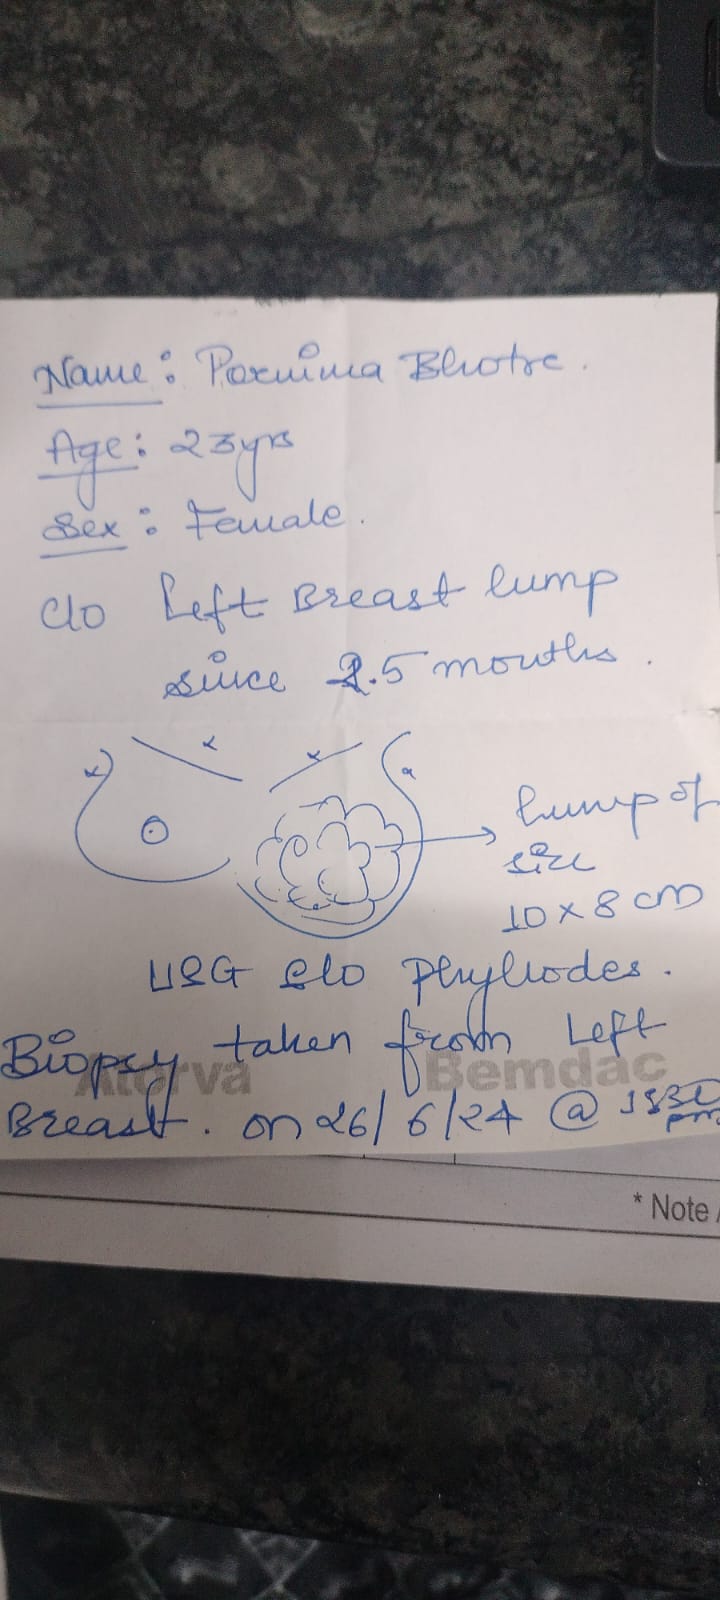 Name: Pornima Bhotre.
Age: 23yrs
Sex: Female.
c/o Left Breast lump
since 2.5 months.
Lump of
size
10 x 8 cm
USG s/o Phyllodes.
Biopsy taken from Left
Atorva Bemdac
Breast. on 26/6/24 @
pm
* Note